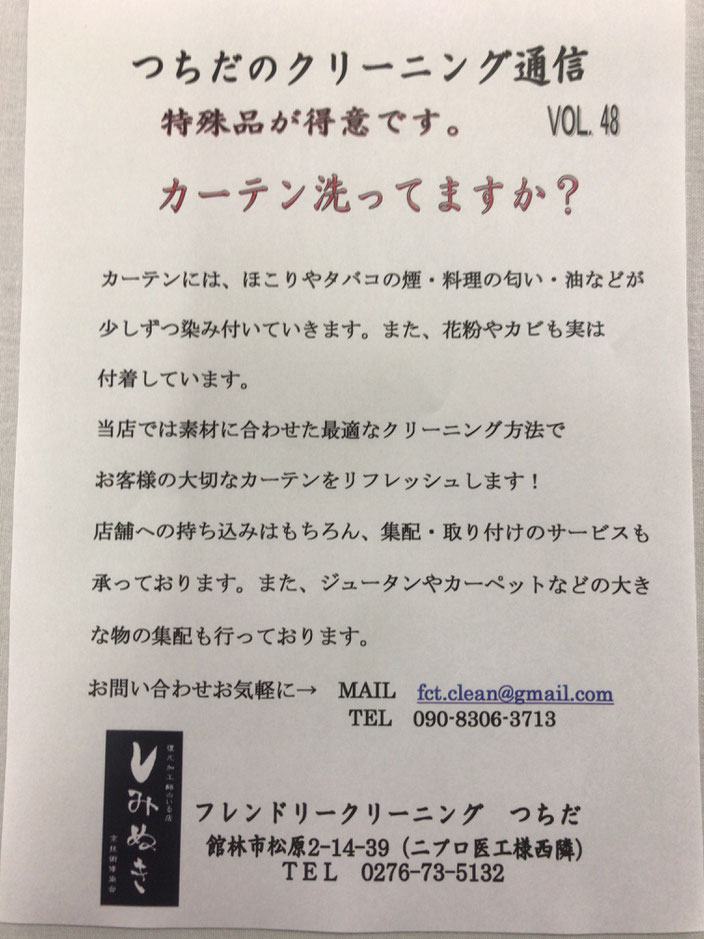 つちだのクリーニング通信
特殊品が得意です。 VOL. 48
カーテン洗ってますか？
カーテンには、ほこりやタバコの煙・料理の匂い・油などが
少しずつ染み付いていきます。また、花粉やカビも実は
付着しています。
当店では素材に合わせた最適なクリーニング方法で
お客様の大切なカーテンをリフレッシュします！
店舗への持ち込みはもちろん、集配・取り付けのサービスも
承っております。また、ジュータンやカーペットなどの大き
な物の集配も行っております。
お問い合わせお気軽に→ MAIL fct.clean@gmail.com
TEL 090-8306-3713
復元加工師のいる店
しみぬき
フレンドリークリーニング つちだ
館林市松原2-14-39（ニプロ医工様西隣）
ＴＥＬ 0276-73-5132